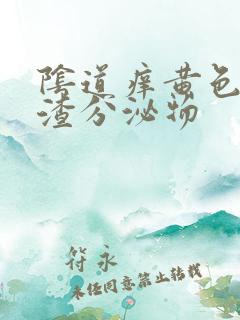 陰道痒黄色
渣分泌物
符永
未经同意禁止转载